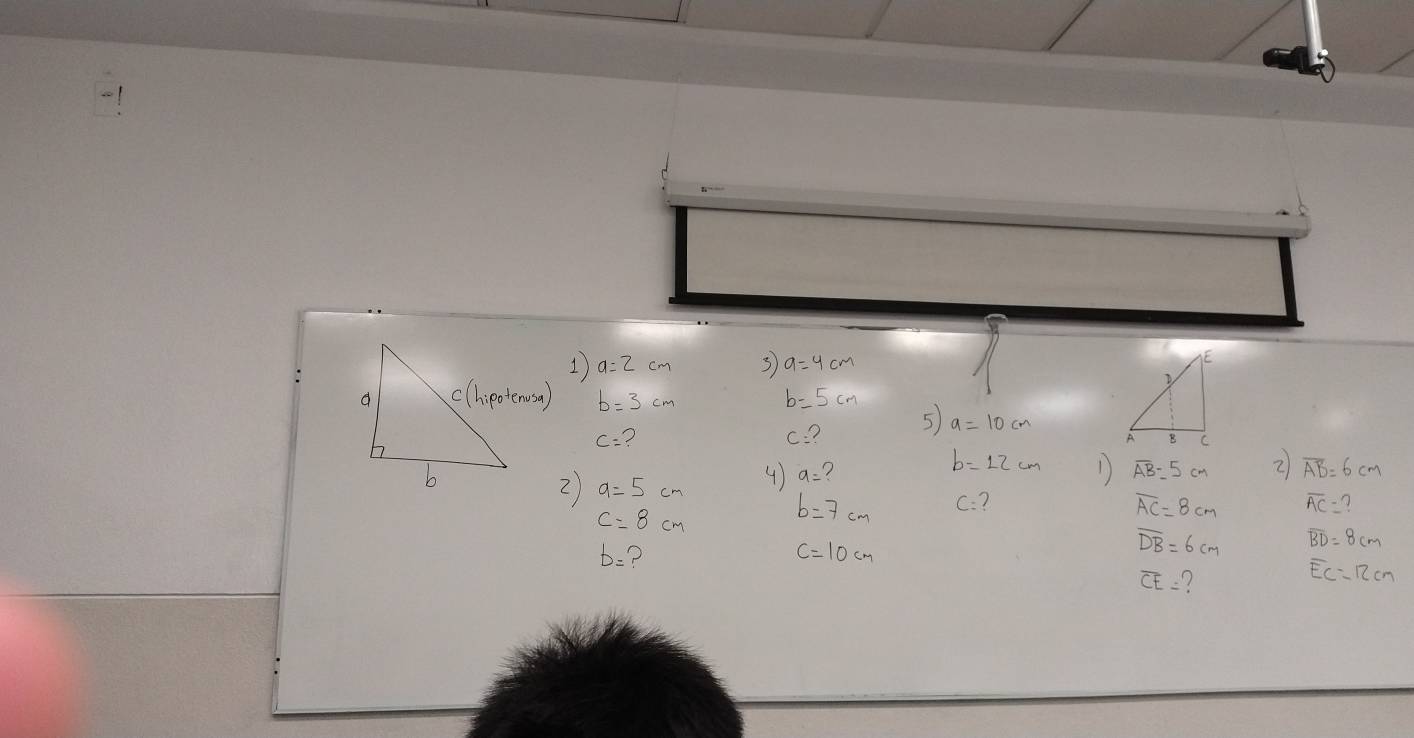 a
c (hipotenusa)
b
1) a=2 cm
b=3 cm
c=?
2) a=5 cm
c=8 cm
b=?
3) a=4 cm
b=5 cm
c=?
4) a=?
b=7 cm
c=10 cm
5) a=10 cm
b=12 cm
c=?
E
D
A B C
1) A̅B̅=5 cm
A̅C̅=8 cm
D̅B̅=6 cm
C̅E̅=?
2) A̅B̅=6 cm
A̅C̅=?
B̅D̅=8 cm
E̅C̅=12 cm